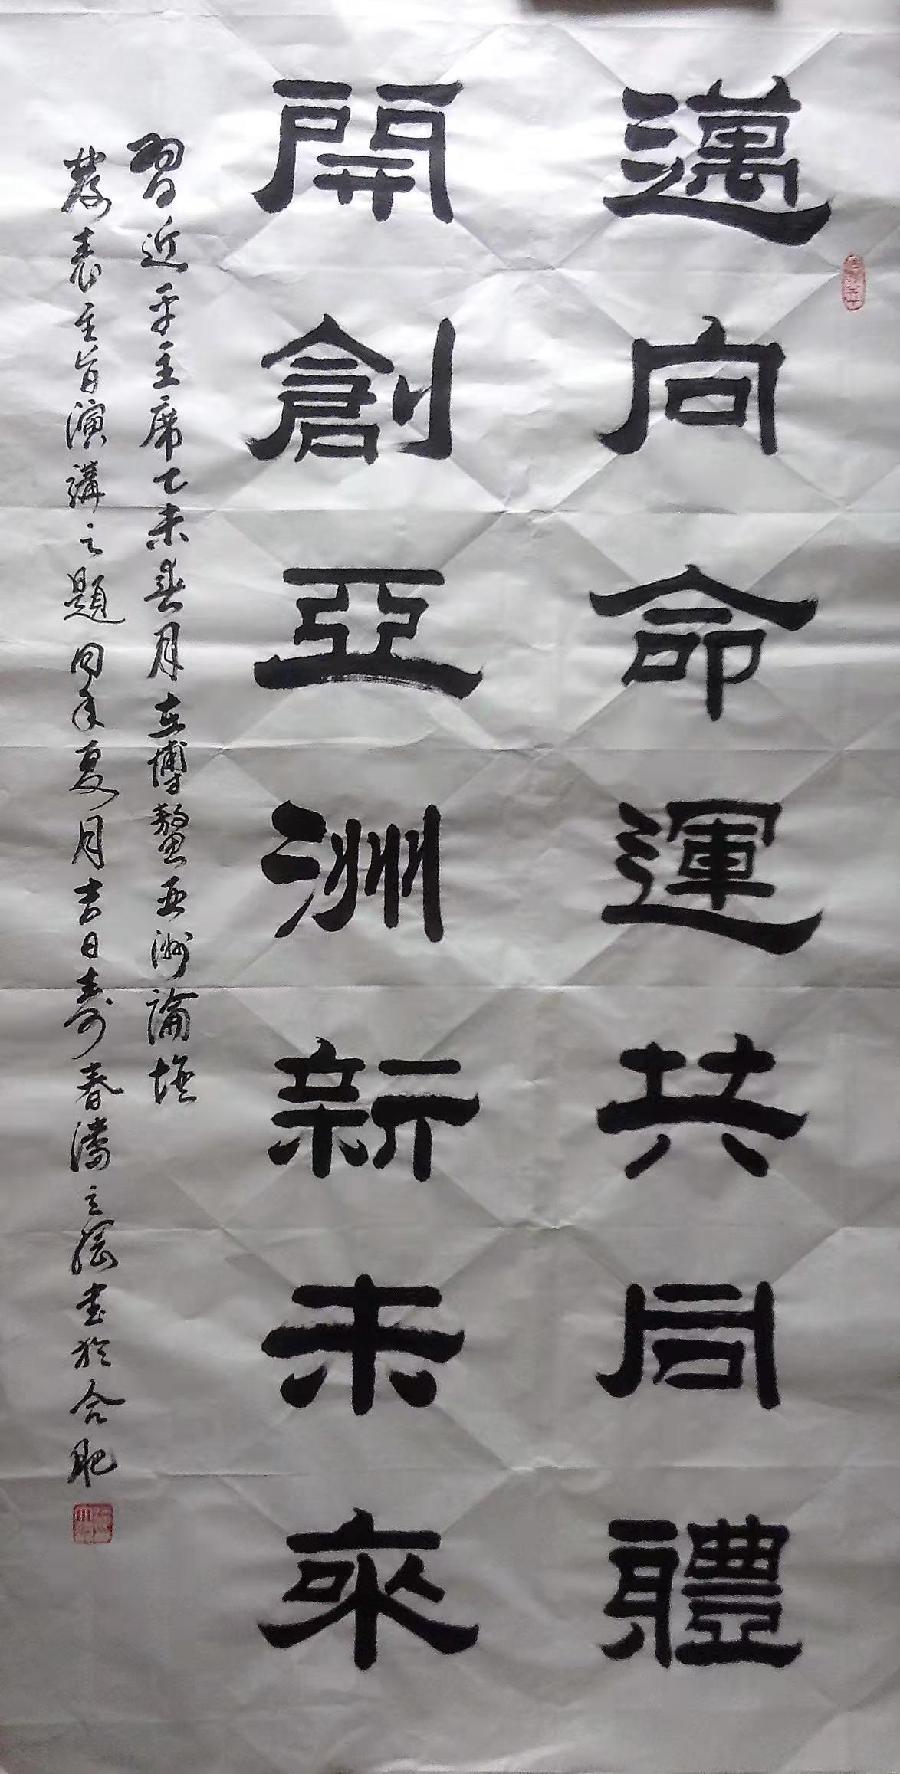 邁向命運共同體
開創亞洲新未來
習近平主席乙未春月在博鰲亞洲論壇
發表主旨演講之題同年夏月吉日壽春濤之書於合肥